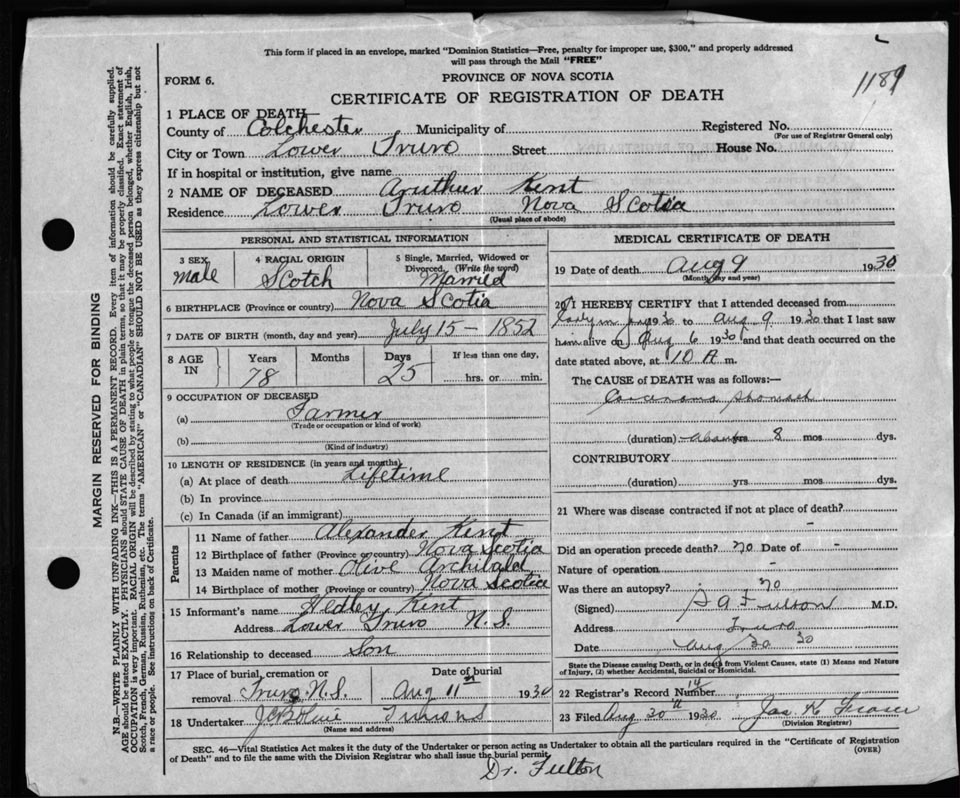 This form if placed in an envelope, marked "Dominion Statistics—Free, penalty for improper use, $300," and properly addressed
will pass through the Mail "FREE"
FORM 6.
PROVINCE OF NOVA SCOTIA
1189
CERTIFICATE OF REGISTRATION OF DEATH
1 PLACE OF DEATH
County of Colchester Municipality of Registered No.
(For use of Registrar General only)
City or Town Lower Truro Street House No.
If in hospital or institution, give name
2 NAME OF DECEASED Aruthur Kent
Residence Lower Truro Nova Scotia
(Usual place of abode)
PERSONAL AND STATISTICAL INFORMATION
3 SEX 4 RACIAL ORIGIN 5 Single, Married, Widowed or Divorced, (Write the word)
Male Scotch Married
6 BIRTHPLACE (Province or country) Nova Scotia
7 DATE OF BIRTH (month, day and year) July 15 - 1852
8 AGE IN Years Months Days If less than one day,
78 25 hrs. or min.
9 OCCUPATION OF DECEASED
(a) Farmer
(Trade or occupation or kind of work)
(b)
(Kind of industry)
10 LENGTH OF RESIDENCE (in years and months)
(a) At place of death Lifetime
(b) In province
(c) In Canada (if an immigrant)
Parents
11 Name of father Alexander Kent
12 Birthplace of father (Province or country) Nova Scotia
13 Maiden name of mother Olive Archibald
14 Birthplace of mother (Province or country) Nova Scotia
15 Informant's name Hedley Kent
Address Lower Truro N.S.
16 Relationship to deceased Son
17 Place of burial, cremation or removal Date of burial
Truro N.S. Aug 11 1930
18 Undertaker Truro NS
(Name and address)
MEDICAL CERTIFICATE OF DEATH
19 Date of death Aug 9 1930
(Month, day and year)
20 I HEREBY CERTIFY that I attended deceased from
1930 to Aug 9 1930 that I last saw
him alive on Aug 6 1930 and that death occurred on the
date stated above, at 10 A m.
The CAUSE of DEATH was as follows:—
Carcinoma Stomach
(duration) about yrs 8 mos dys.
CONTRIBUTORY
(duration) yrs mos dys.
21 Where was disease contracted if not at place of death?
-
Did an operation precede death? no Date of -
Nature of operation -
Was there an autopsy? no
(Signed) Fulton M.D.
Address Truro
Date Aug 30 30
State the Disease causing Death, or in death from Violent Causes, state (1) Means and Nature
of Injury, (2) whether Accidental, Suicidal or Homicidal.
22 Registrar's Record Number 14
23 Filed Aug 30 1930 Jas Fraser
(Division Registrar)
SEC. 46—Vital Statistics Act makes it the duty of the Undertaker or person acting as Undertaker to obtain all the particulars required in the "Certificate of Registration
of Death" and to file the same with the Division Registrar who shall issue the burial permit.
(OVER)
Dr. Fulton
MARGIN RESERVED FOR BINDING
N.B.—WRITE PLAINLY WITH UNFADING INK—THIS IS A PERMANENT RECORD. Every item of information should be carefully supplied.
AGE should be stated EXACTLY. PHYSICIANS should STATE CAUSE OF DEATH in plain terms, so that it may be properly classified. Exact statement of
OCCUPATION is very important. RACIAL ORIGIN will be described by stating to what people or tongue the deceased person belonged, whether English, Irish,
Scotch, French, German, Russian, Ruthenian, etc. The terms "AMERICAN" or "CANADIAN" SHOULD NOT BE USED as they express citizenship but not
a race or people. See instructions on back of Certificate.